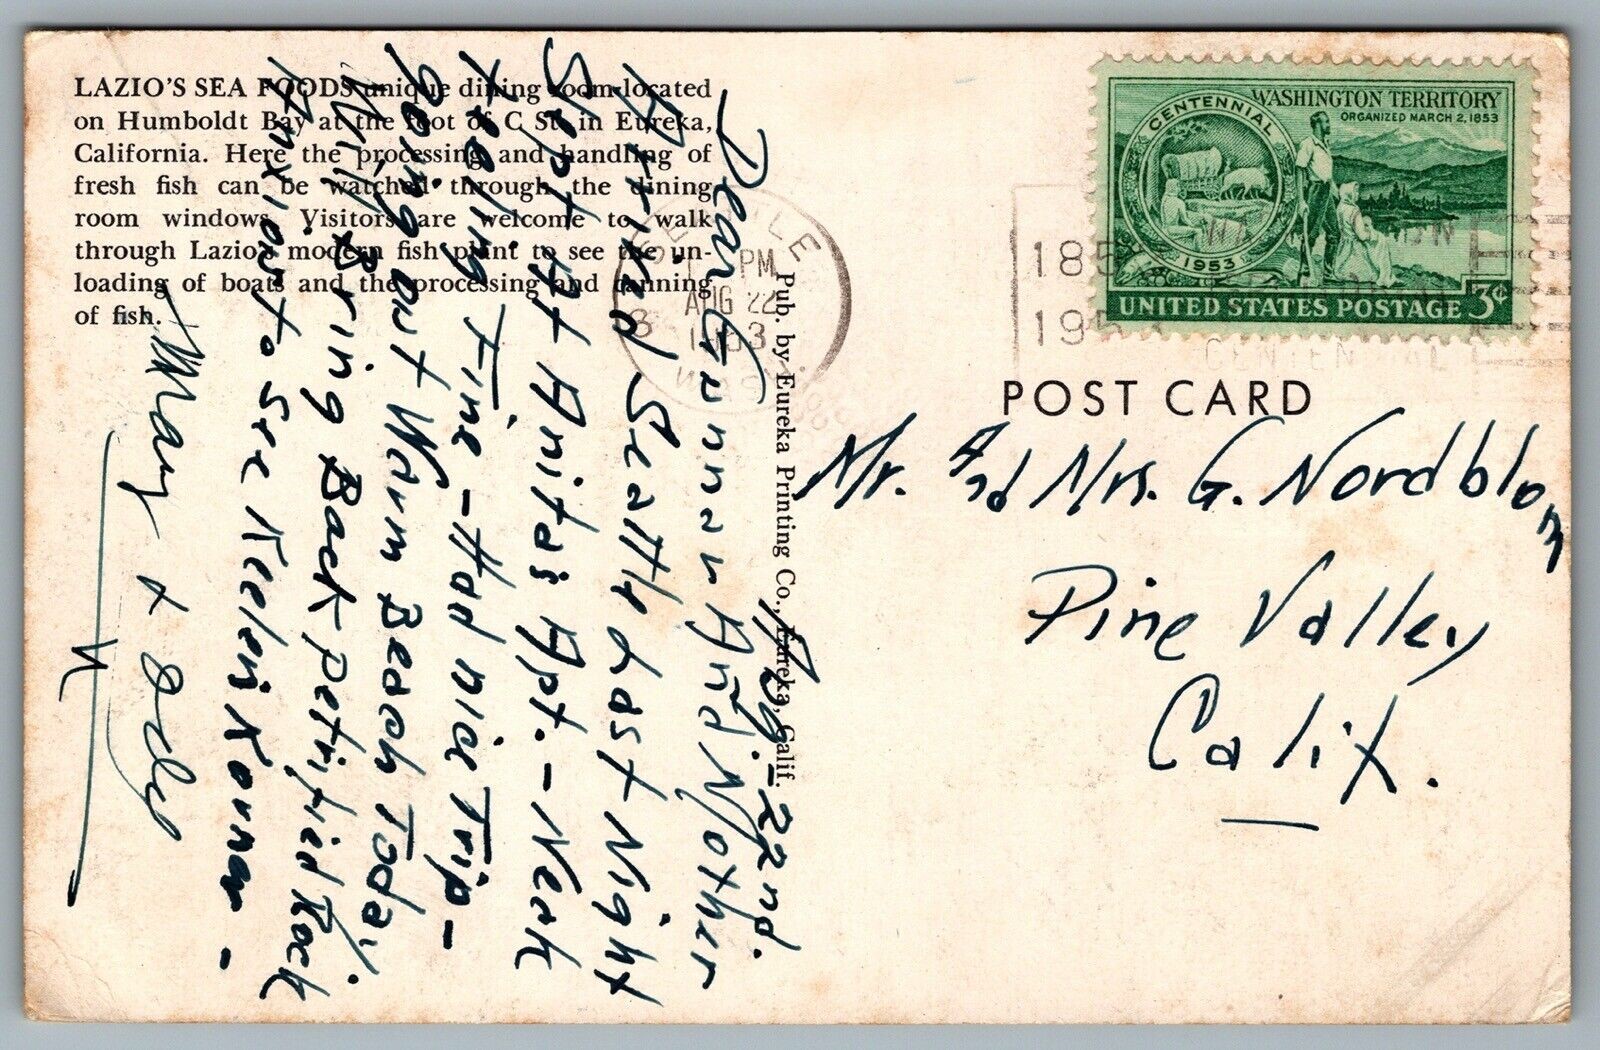 LAZIO'S SEA FOODS unique dining room located
on Humboldt Bay at the foot of C St. in Eureka,
California. Here the processing and handling of
fresh fish can be watched through the dining
room windows. Visitors are welcome to walk
through Lazio's modern fish plant to see the un-
loading of boats and the processing and canning
of fish.
Aug. - 22nd.
Dear Gunnar And Mother
Arrived Seattle Last Night
Slept At Anita's Apt. - Neck
Feeling Fine - Had nice Trip -
going out Warm Beach Today
Will Bring Back petrified Rock
Anxious to see
May &
Pub. by Eureka Printing Co., Eureka, Calif.
SEATTLE
PM
AUG 22
1953
WASH
CENTENNIAL
1953
WASHINGTON TERRITORY
ORGANIZED MARCH 2, 1853
UNITED STATES POSTAGE 3¢
1853
1953
CENTENNIAL
POST CARD
Mr. And Mrs. G. Nordblom
Pine Valley
Calif.